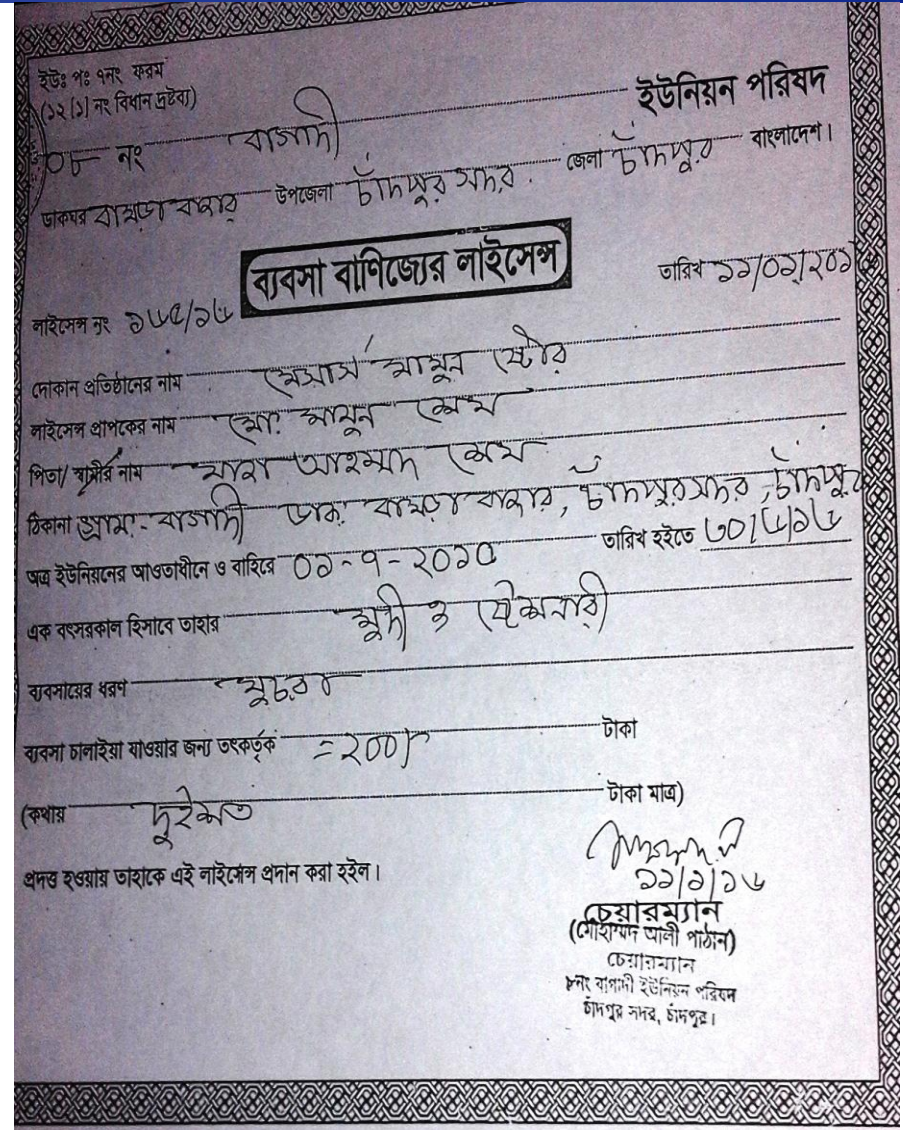 ইউঃ পঃ ৭নং ফরম
(১২ (১) নং বিধান দ্রষ্টব্য)
০৮ নং বাগাদী ইউনিয়ন পরিষদ
ডাকঘর উপজেলা চাঁদপুর সদর জেলা চাঁদপুর বাংলাদেশ।
ব্যবসা বাণিজ্যের লাইসেন্স
লাইসেন্স নং ১৬৫/১৬ তারিখ ১১/০১/২০১
দোকান প্রতিষ্ঠানের নাম মেসার্স মামুন ষ্টোর
লাইসেন্স প্রাপকের নাম মো: মামুন শেখ
পিতা/ স্বামীর নাম আহম্মদ শেখ
ঠিকানা গ্রাম:- বাগাদী ডাক: চাঁদপুর সদর, চাঁদপুর
অত্র ইউনিয়নের আওতাধীনে ও বাহিরে ০১-৭-২০১৫ তারিখ হইতে ৩০/৬/১৬
এক বৎসরকাল হিসাবে তাহার মুদী ও ষ্টেশনারী
ব্যবসায়ের ধরণ খুচরা
ব্যবসা চালাইয়া যাওয়ার জন্য তৎকর্তৃক =২০০/- টাকা
(কথায় দুইশত টাকা মাত্র)
প্রদত্ত হওয়ায় তাহাকে এই লাইসেন্স প্রদান করা হইল।
১১/১/১৬
চেয়ারম্যান
(মোহাম্মদ আলী পাঠান)
চেয়ারম্যান
৮নং বাগাদী ইউনিয়ন পরিষদ
চাঁদপুর সদর, চাঁদপুর।